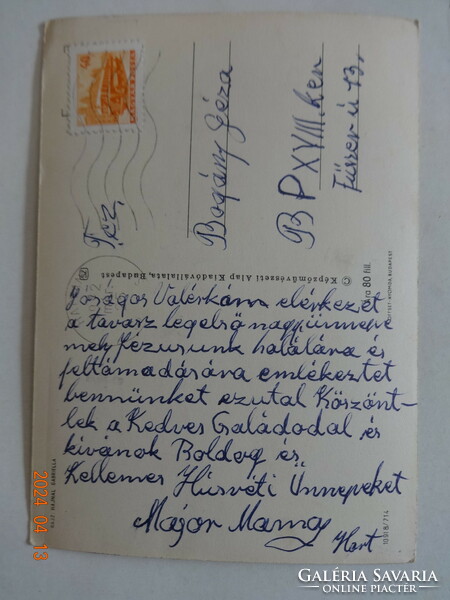 40
MAGYAR POSTA
Fcz.
Bogány Géza
BP XVIII. ker
Füsser ú 13
© Képzőművészeti Alap Kiadóvállalata, Budapest
Ára 80 fill.
OFFSET-NYOMDA BUDAPEST
Jóságos Valérkám elérkezet
a tavasz legelső nagyünnepe
mely Jézusunk halálára és
feltámadására emlékeztet
bennünket ezutal Köszönt-
lek a Kedves Galádodal és
kívánok Boldog és
Kellemes Húsvéti Ünnepeket
Májor Mama
Hart
RAJZ: HAJNAL GABRIELLA
10918/714
2024 04 13
GALÉRIA SAVARIA
ONLINE PIACTÉR